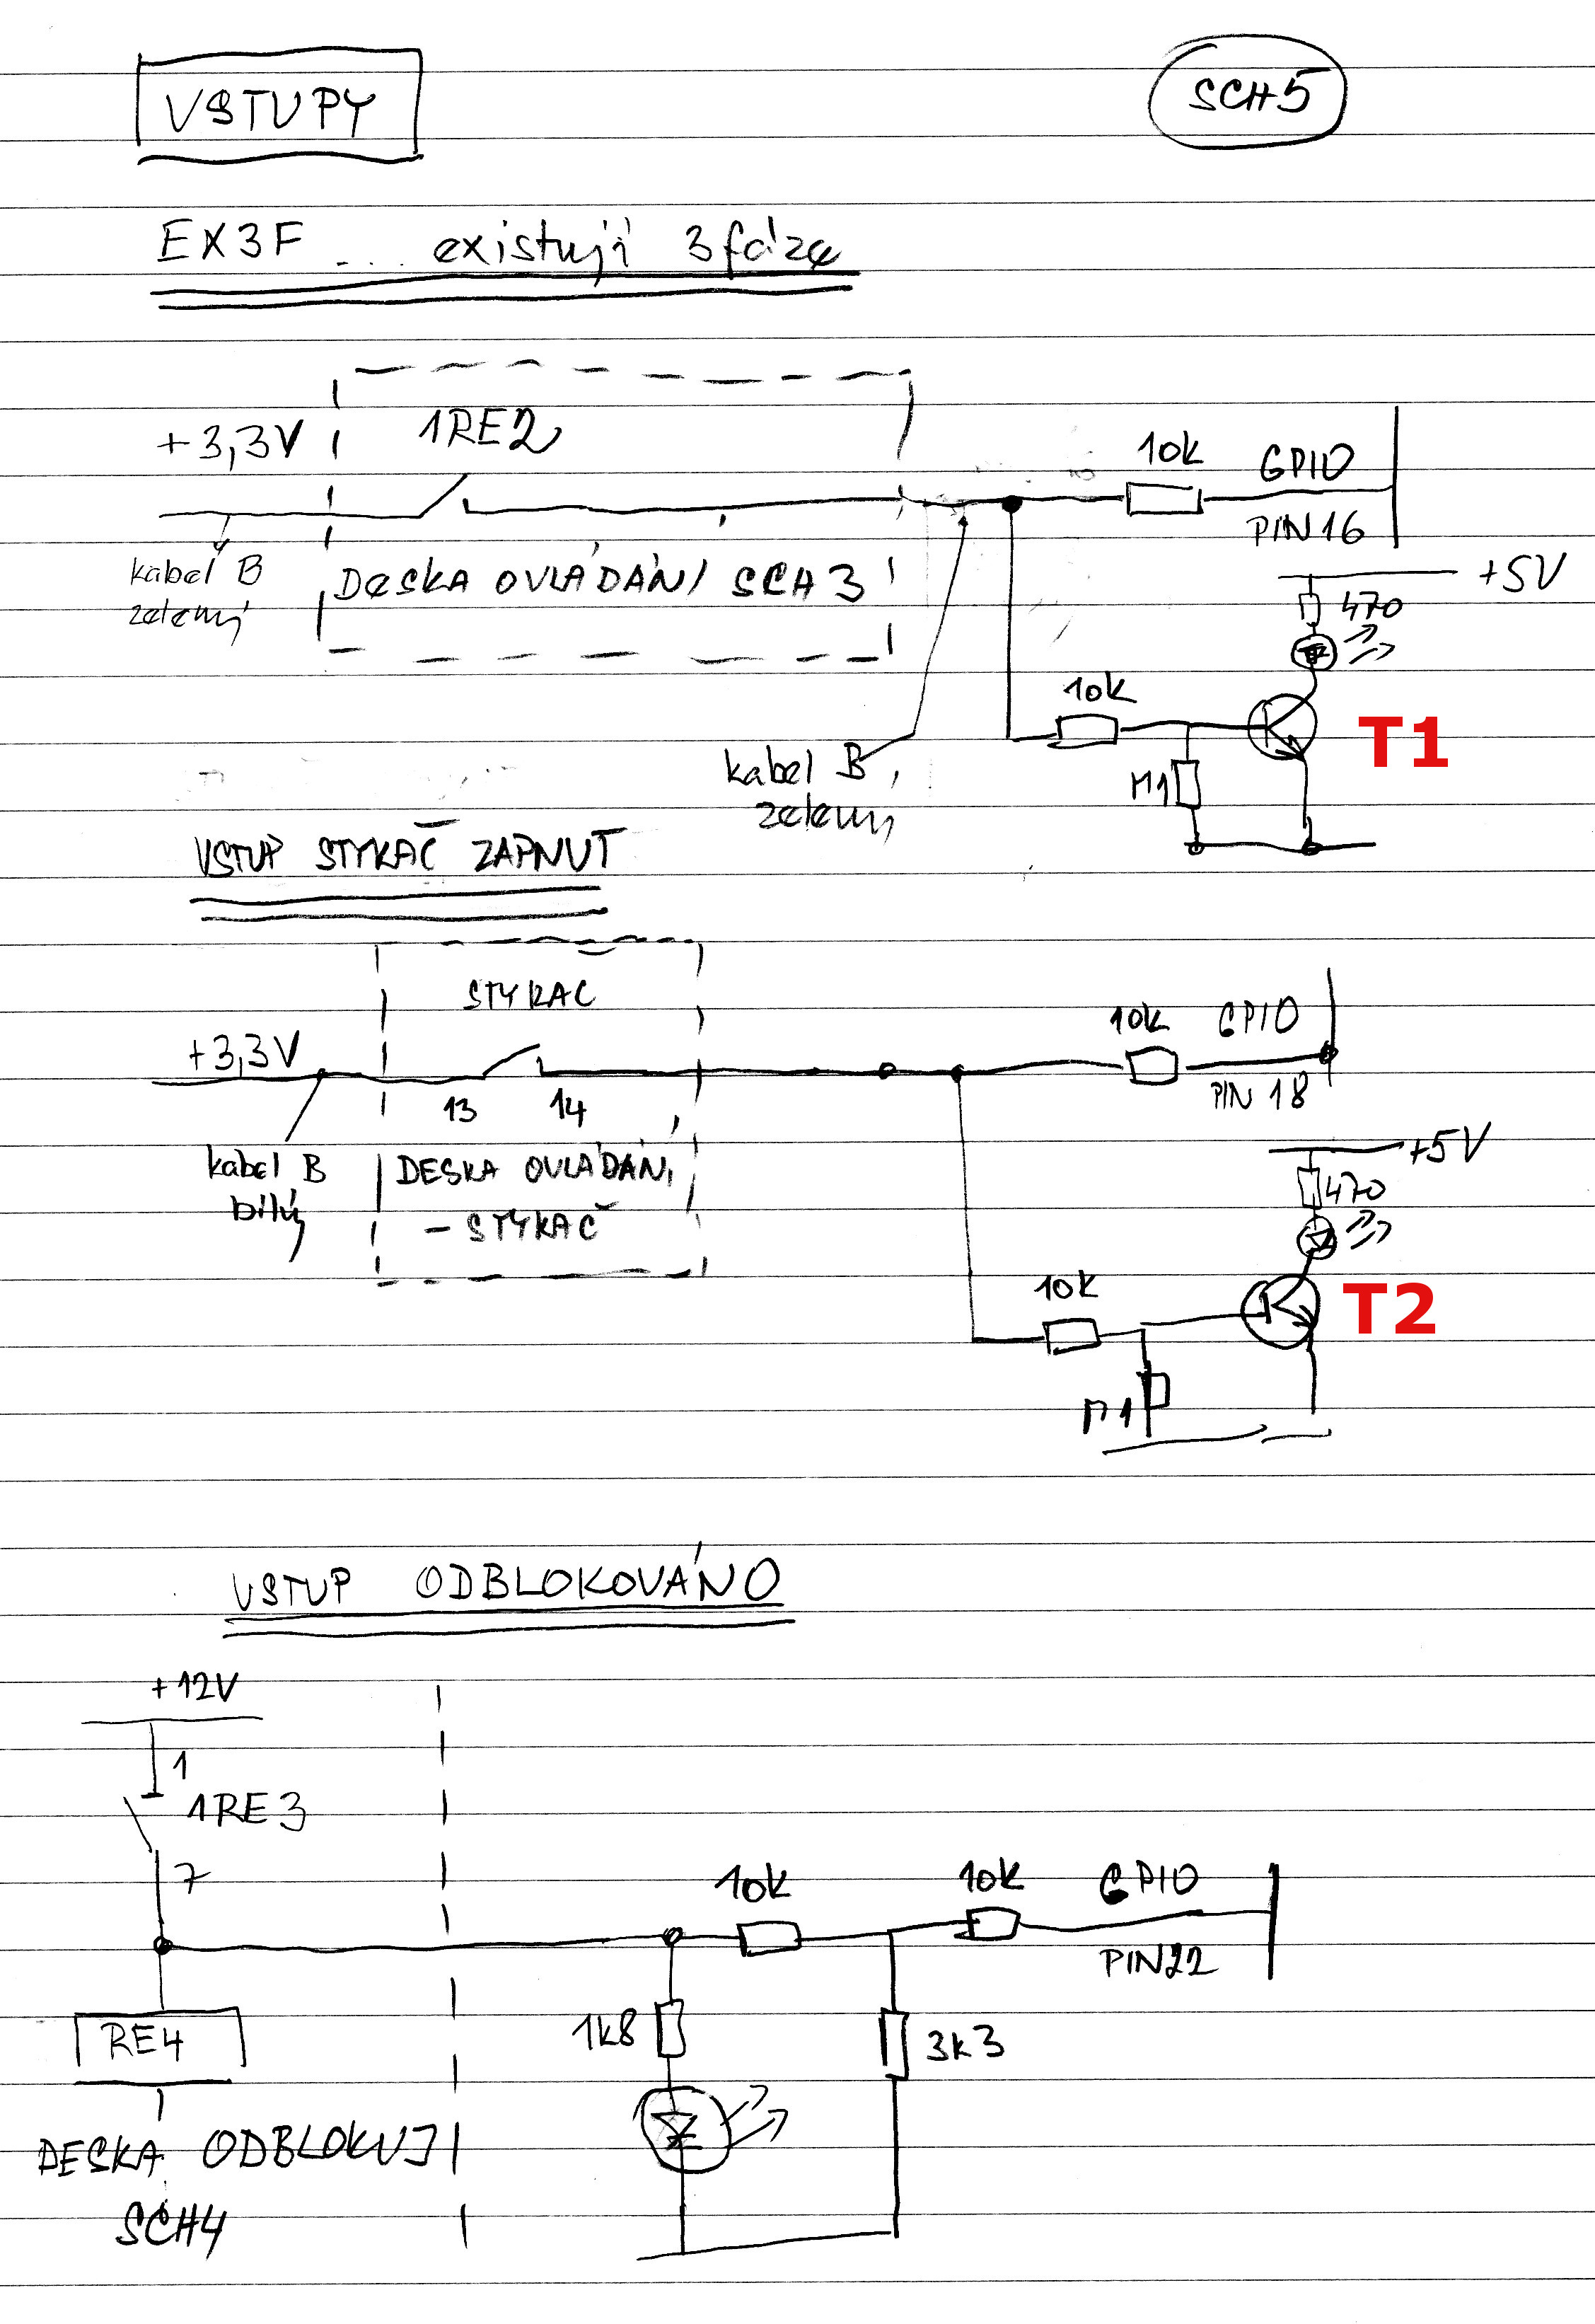 VSTUPY
SCH5
EX3F ... existují 3 fáze
+3,3V
1RE2
10k
GPIO
PIN 16
kabel B
zelený
DESKA OVLÁDÁNÍ SCH3
+5V
470
10k
T1
M1
kabel B
zelený
VSTUP STYKAČ ZAPNUT
STYKAC
+3,3V
10k
GPIO
13
14
PIN 18
kabel B
bílý
DESKA OVLÁDÁNÍ
- STYKAČ
+5V
470
10k
T2
M1
VSTUP ODBLOKOVÁNO
+12V
1
1RE3
7
10k
10k
GPIO
PIN22
RE4
1k8
3k3
DESKA ODBLOKUJ
SCH4